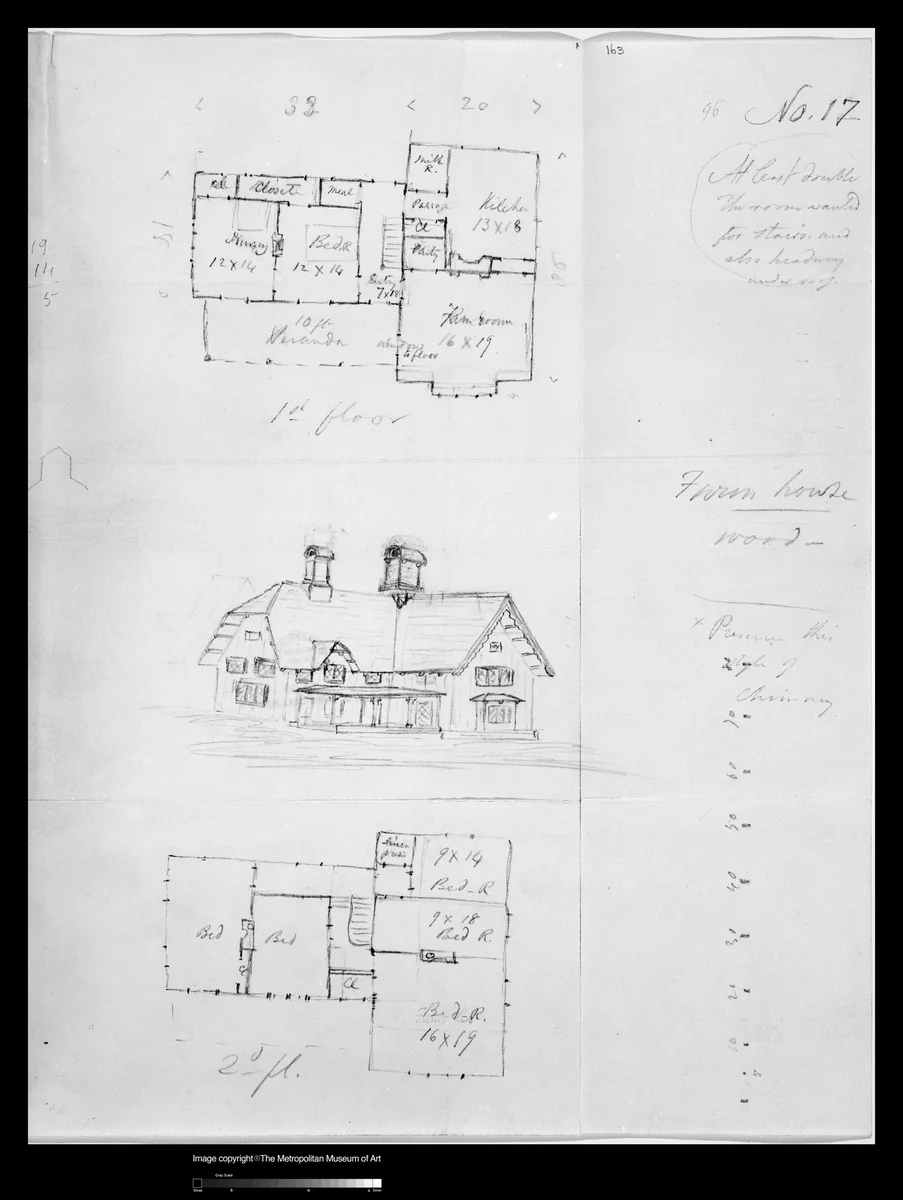 163
96 No. 17
33 20
At least double
the room wanted
for stairs and
also headway
under roof.
Milk
R.
Cl Closets Meal
Passage
Kitchen
13 X 18
Cl
Nursery
12 X 14
Bed R.
12 X 14
Pantry
Entry
19
14
5
10 ft
Veranda
windows
to floor
Farm room
16 X 19
1st floor
Farm house
wood –
x Preserve this
style of
Chimney
70
60
50
40
30
20
10
5
9 X 14
Bed-R
9 X 18
Bed R.
Bed
Bed
Cl
Bed-R.
16 X 19
2d fl.
Image copyright © The Metropolitan Museum of Art
Gray Scale